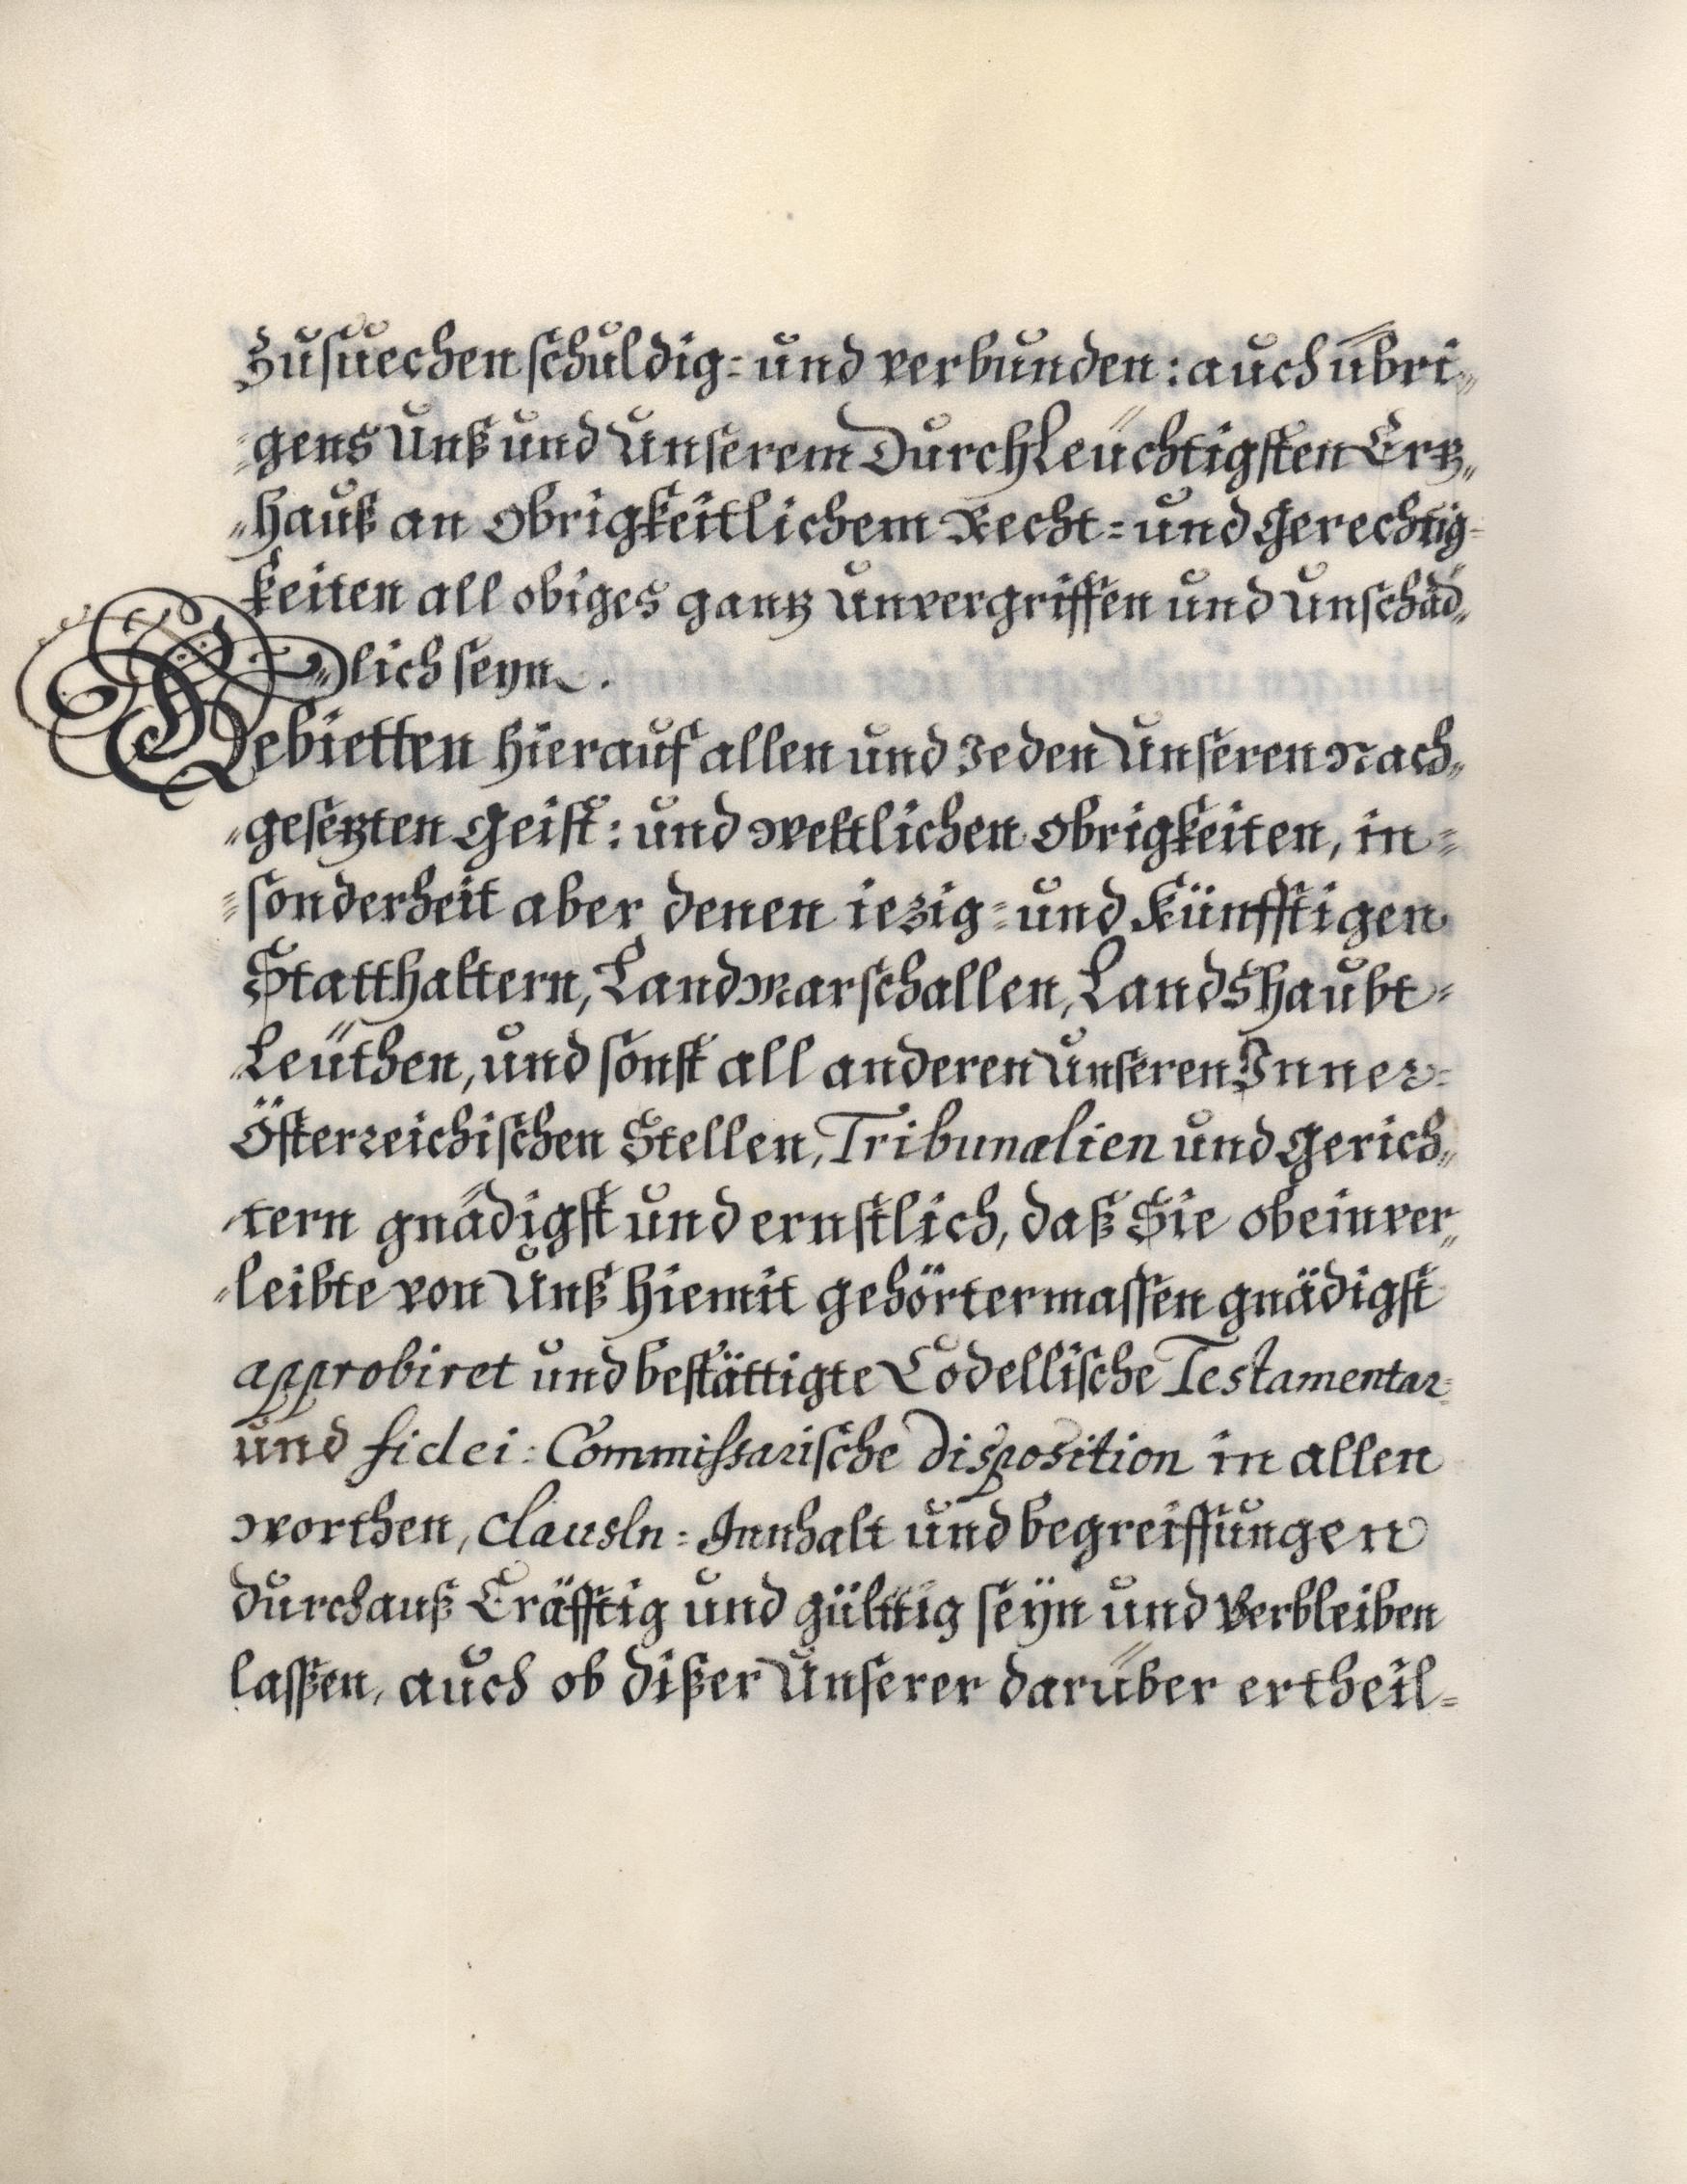 Zusuechen schuldig= und verbunden: auch übri„
„gens Unß und Unserem Durchleüchtigsten Ertz„
„hauß an Obrigkeitlichem Recht= und Gerechtig=
keiten all obiges gantz Unvergriffen und Unschäd„
„lich seyn.
Gebietten hierauf allen und Jeden Unseren Nach„
„gesetzten Geist: und Weltlichen Obrigkeiten, in=
=sonderheit aber denen iezig= und Künfftigen
Statthaltern, LandMarschallen, Landshaubt=
Leüthen, und sonst all anderen Unseren Inner=
Österreichischen Stellen, Tribunalien und Gerich„
„tern gnädigst und ernstlich, daß Sie obeinver„
„leibte von Unß hiemit gehörtermassen gnädigst
approbiret und bestättigte Codellische Testamentar=
und fidei: Commissarische Disposition in allen
Worthen, Clausln= Innhalt und begreiffungen
durchauß Cräfftig und gülttig seÿn und Verbleiben
lassen, auch ob dißer Unserer darüber ertheil=